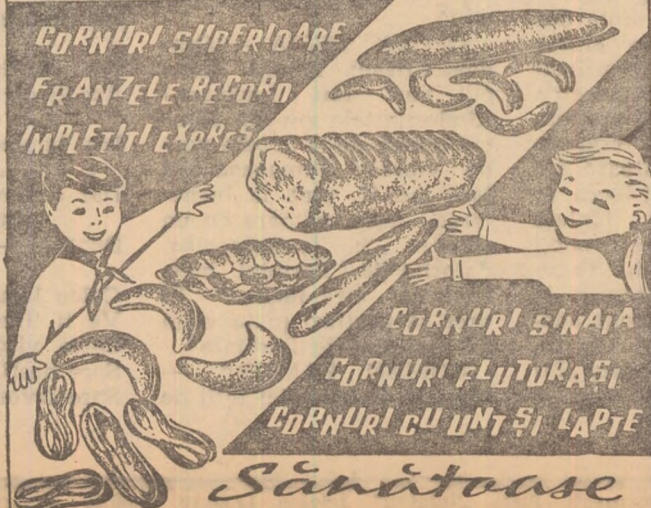 CORNURI SUPERIOARE
FRANZELE RECORD
IMPLETITI EXPRES
CORNURI SINAIA
CORNURI FLUTURAȘI
CORNURI CU UNT ȘI LAPTE
Sănătoase